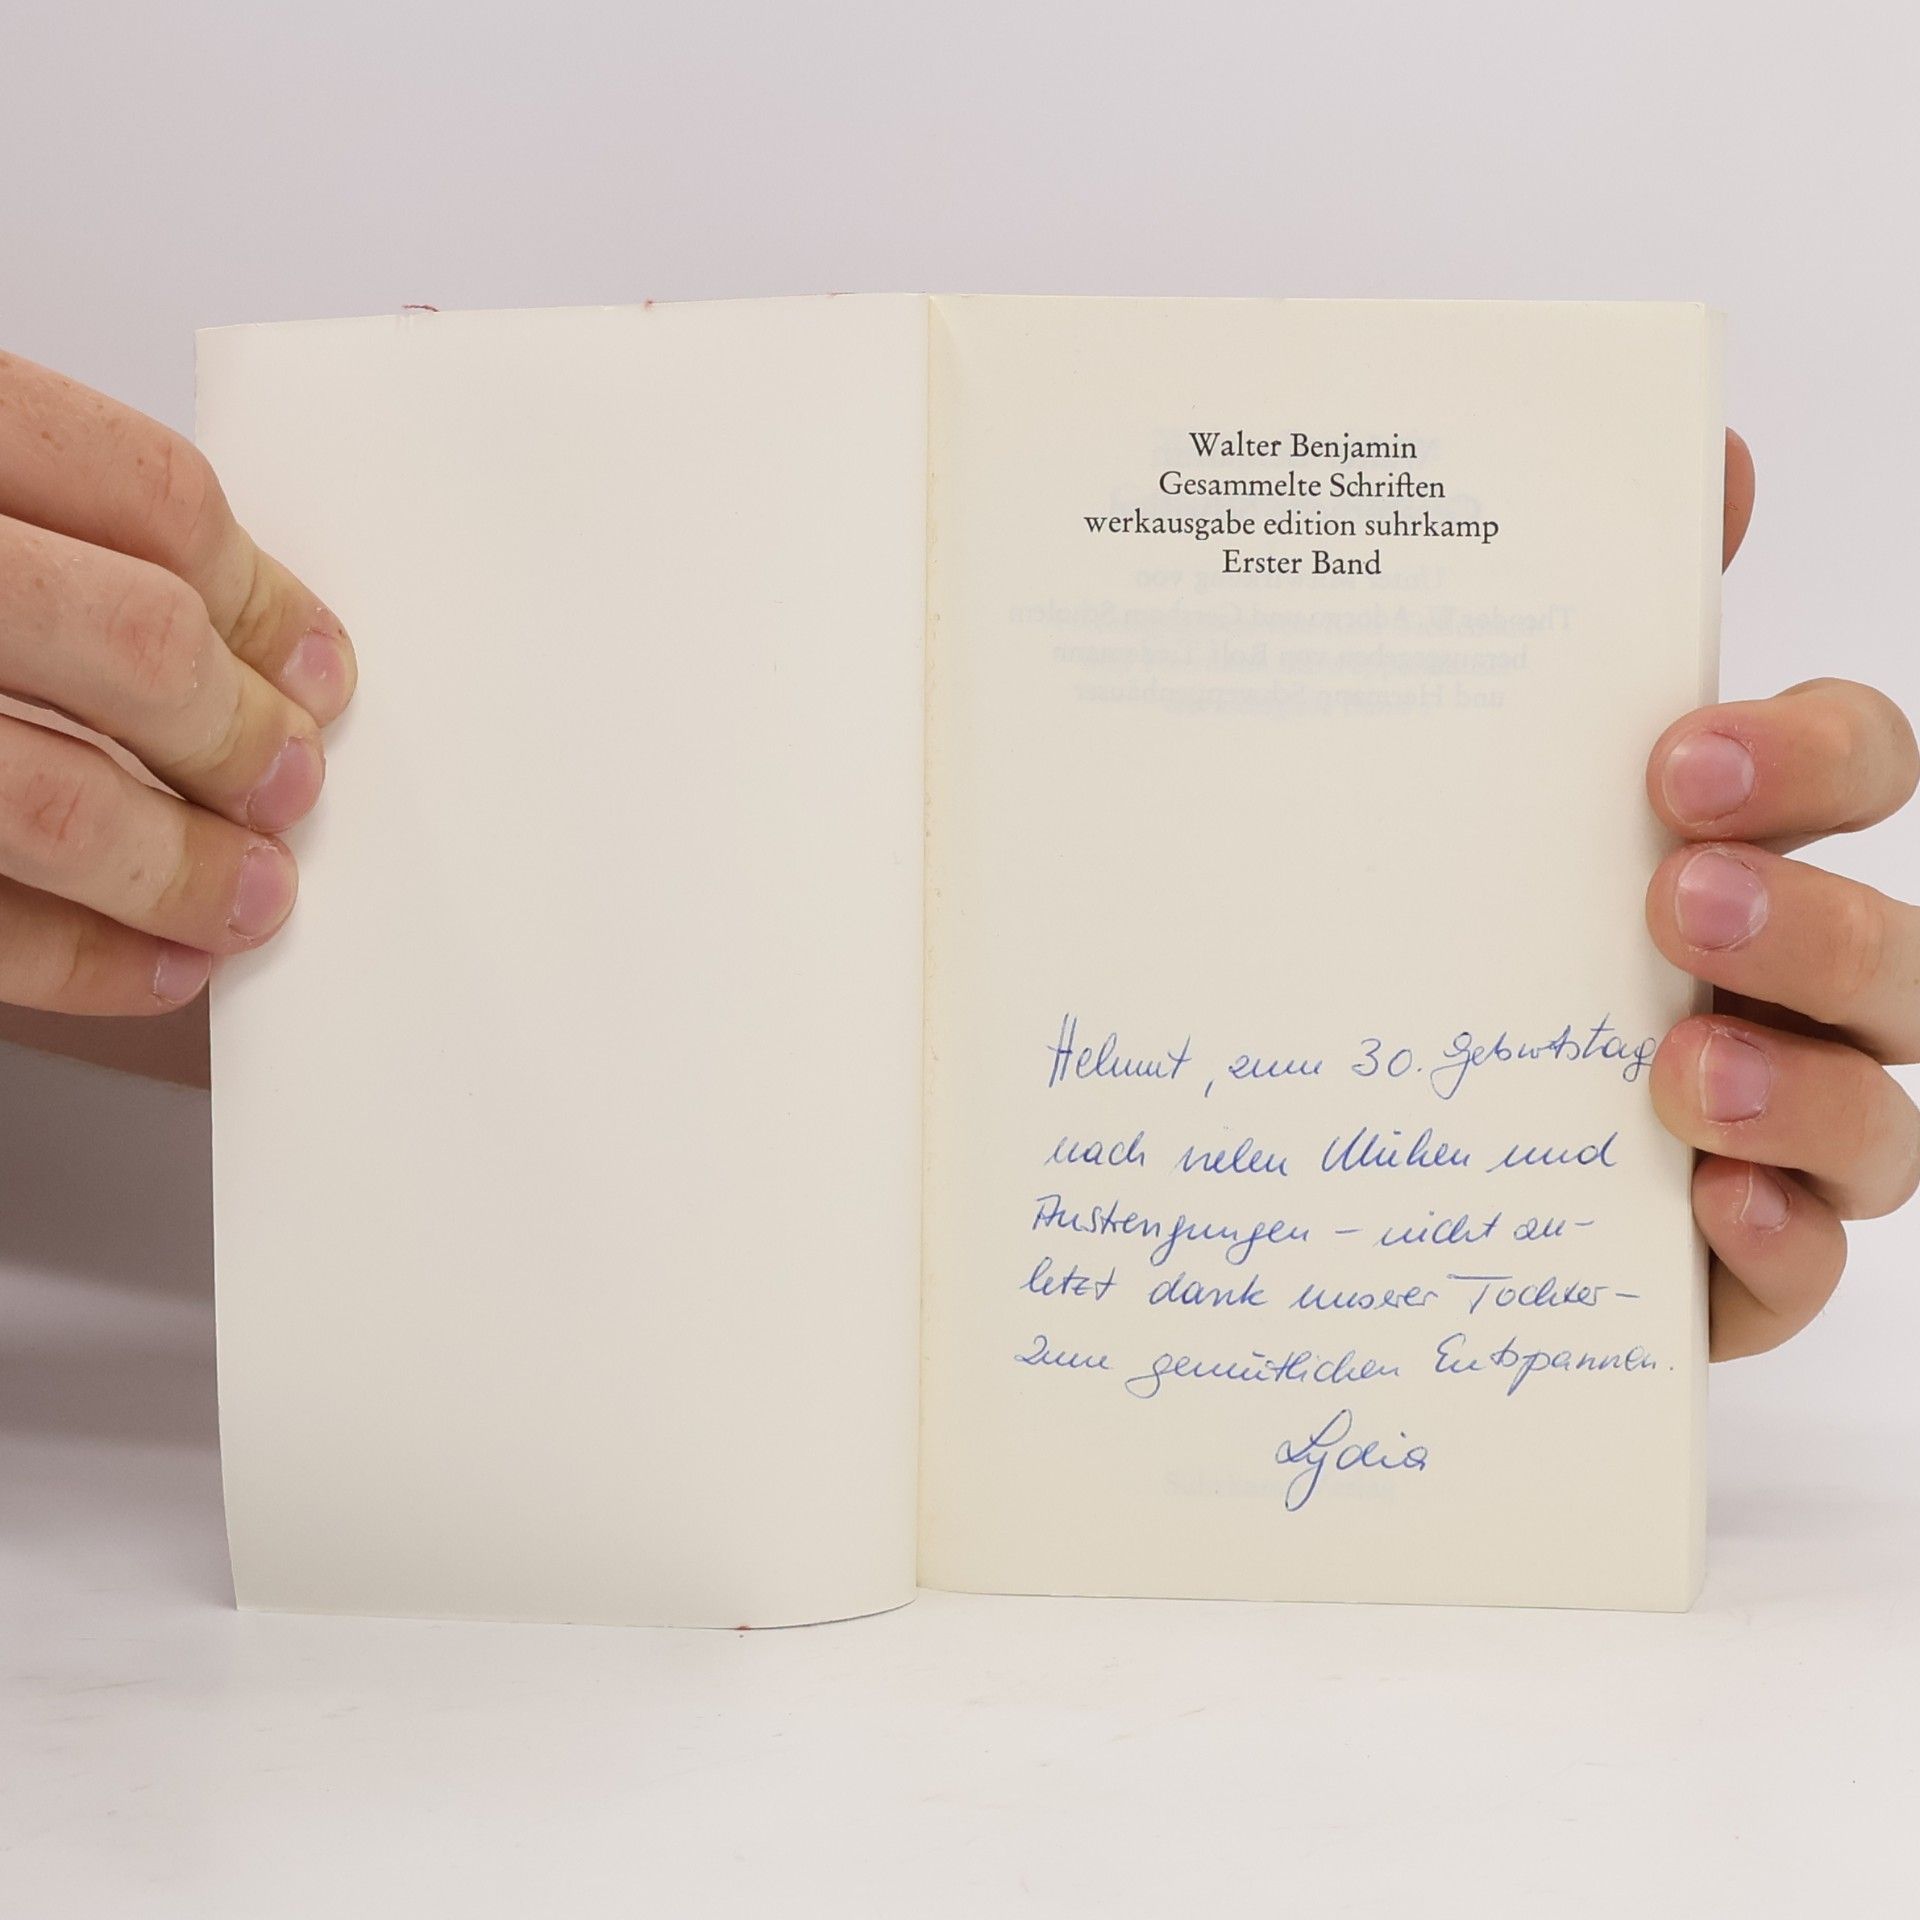 Walter Benjamin
Gesammelte Schriften
werkausgabe edition suhrkamp
Erster Band
Helmut, zum 30. Geburtstag
nach vielen Mühen und
Anstrengungen – nicht zu-
letzt dank unserer Tochter –
zum gemütlichen Entspannen.
Lydia